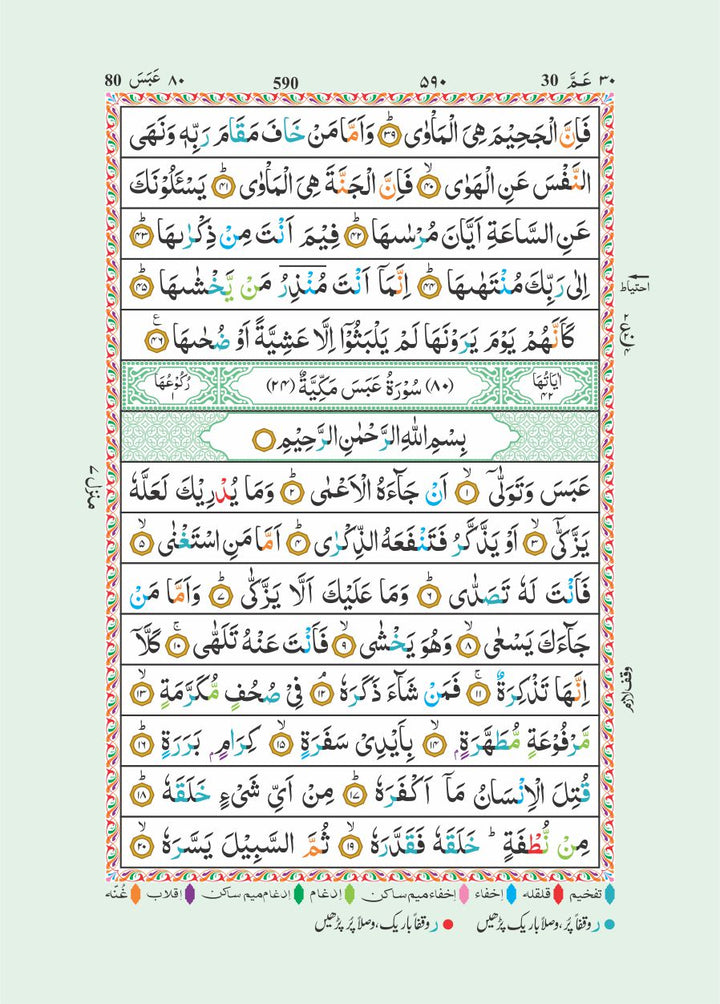 ٣٠ عَمَّ 30 ٥٩٠ 590 ٨٠ عَبَسَ 80
فَاِنَّ الْجَحِيْمَ هِيَ الْمَاْوٰى ۟ؕ۳۹ وَاَمَّا مَنْ خَافَ مَقَامَ رَبِّهٖ وَنَهَى
النَّفْسَ عَنِ الْهَوٰى ۟ۙ۴۰ فَاِنَّ الْجَنَّةَ هِيَ الْمَاْوٰى ۟ؕ۴۱ يَسْـَٔلُوْنَكَ
عَنِ السَّاعَةِ اَيَّانَ مُرْسٰىهَا ۟ؕ۴۲ فِيْمَ اَنْتَ مِنْ ذِكْرٰىهَا ۟ؕ۴۳
اِلٰى رَبِّكَ مُنْتَهٰىهَا ۟ؕ۴۴ اِنَّمَاۤ اَنْتَ مُنْذِرُ مَنْ يَّخْشٰىهَا ۟ؕ۴۵
احتیاط
كَاَنَّهُمْ يَوْمَ يَرَوْنَهَا لَمْ يَلْبَثُوْۤا اِلَّا عَشِيَّةً اَوْ ضُحٰىهَا ۟۠۴۶
اٰيَاتُهَا ۴۲ (۸۰) سُوْرَةُ عَبَسَ مَكِّيَّةٌ (۲۴) رُكُوْعُهَا ۱
بِسْمِ اللّٰهِ الرَّحْمٰنِ الرَّحِيْمِ
عَبَسَ وَتَوَلّٰۤى ۟ۙ۱ اَنْ جَآءَهُ الْاَعْمٰى ۟ؕ۲ وَمَا يُدْرِيْكَ لَعَلَّهٗ
منزل ۷
يَزَّكّٰۤى ۟ۙ۳ اَوْ يَذَّكَّرُ فَتَنْفَعَهُ الذِّكْرٰى ۟ؕ۴ اَمَّا مَنِ اسْتَغْنٰى ۟ۙ۵
فَاَنْتَ لَهٗ تَصَدّٰى ۟ؕ۶ وَمَا عَلَيْكَ اَلَّا يَزَّكّٰى ۟ؕ۷ وَاَمَّا مَنْ
جَآءَكَ يَسْعٰى ۟ۙ۸ وَهُوَ يَخْشٰى ۟ۙ۹ فَاَنْتَ عَنْهُ تَلَهّٰى ۟ۚ۱۰ كَلَّاۤ
اِنَّهَا تَذْكِرَةٌ ۟ۚ۱۱ فَمَنْ شَآءَ ذَكَرَهٗ ۟ۘ۱۲ فِيْ صُحُفٍ مُّكَرَّمَةٍ ۟ۙ۱۳
وقف لازم
مَّرْفُوْعَةٍ مُّطَهَّرَةٍۭ ۟ۙ۱۴ بِاَيْدِيْ سَفَرَةٍ ۟ۙ۱۵ كِرَامٍۭ بَرَرَةٍ ۟ؕ۱۶
قُتِلَ الْاِنْسَانُ مَاۤ اَكْفَرَهٗ ۟ؕ۱۷ مِنْ اَيِّ شَيْءٍ خَلَقَهٗ ۟ؕ۱۸
مِنْ نُّطْفَةٍ ؕ خَلَقَهٗ فَقَدَّرَهٗ ۟ۙ۱۹ ثُمَّ السَّبِيْلَ يَسَّرَهٗ ۟ۙ۲۰
تفخیم قلقله اِخفاء اِخفاء میم ساکن اِدغام اِدغام میم ساکن اِقلاب غُنّه
ر وقفاً پُر، وصلاً باریک پڑھیں ر وقفاً باریک، وصلاً پُر پڑھیں